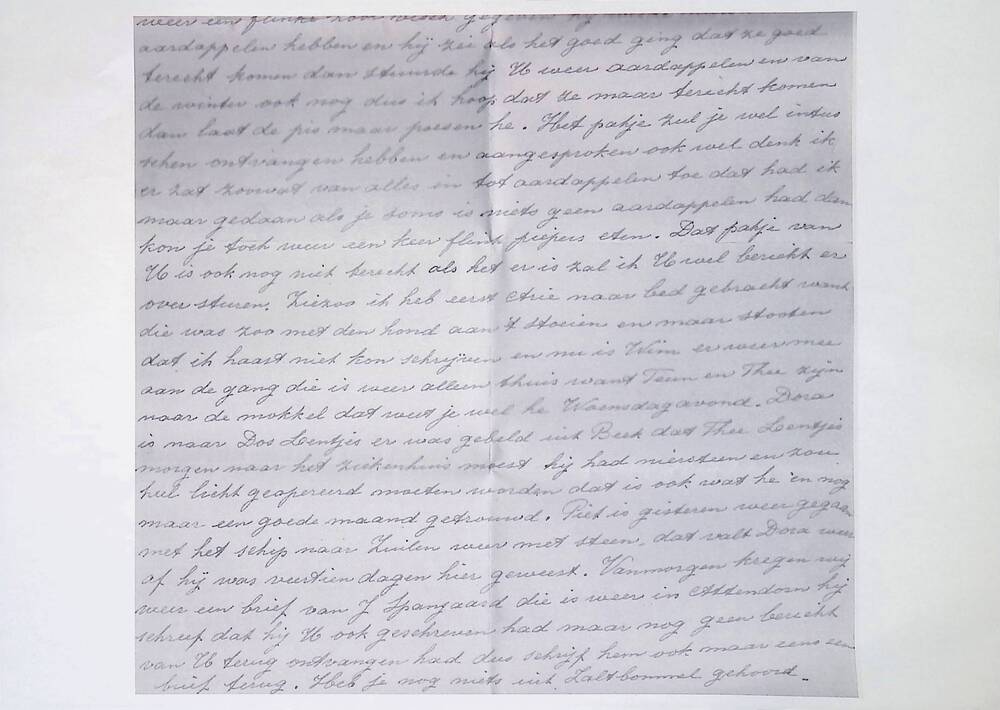 weer een flinke zoor gegeven hij
aardappelen hebben en hij zei als het goed ging dat ze goed
terecht komen dan stuurde hij U weer aardappelen en van
de winter ook nog dus ik hoop dat ze maar terecht komen
dan laat de pis maar poesen he. Het pakje zul je wel intus
schen ontvangen hebben en aangesproken ook wel denk ik
er zat zoowat van alles in tot aardappelen toe dat had ik
maar gedaan als je soms is niets geen aardappelen had dan
kon je toch weer een keer flink piepers eten. Dat pakje van
U is ook nog niet terecht als het er is zal ik U wel bericht er
over sturen. Ziezoo ik heb eerst Arie naar bed gebracht want
die was zoo met den hond aan 't stoeien en maar stooten
dat ik haast niet kon schrijven en nu is Wim er weer mee
aan de gang die is weer alleen thuis want Teun en Thee zijn
naar de mokkel dat weet je wel he Woensdagavond. Dora
is naar Dos Lentjes er was gebeld uit Beek dat Thee Lentjes
morgen naar het ziekenhuis moest hij had niersteen en zou
heel licht geopereerd moeten worden dat is ook wat he en nog
maar een goede maand getrouwd. Piet is gisteren weer gegaan
met het schip naar Zuilen weer met steen, dat valt Dora weer
af hij was veertien dagen hier geweest. Vanmorgen kregen wij
weer een brief van J Spanjaard die is weer in Attendorn hij
schreef dat hij U ook geschreven had maar nog geen bericht
van U terug ontvangen had dus schrijf hem ook maar eens een
brief terug. Heb je nog niets uit Zaltbommel gehoord.